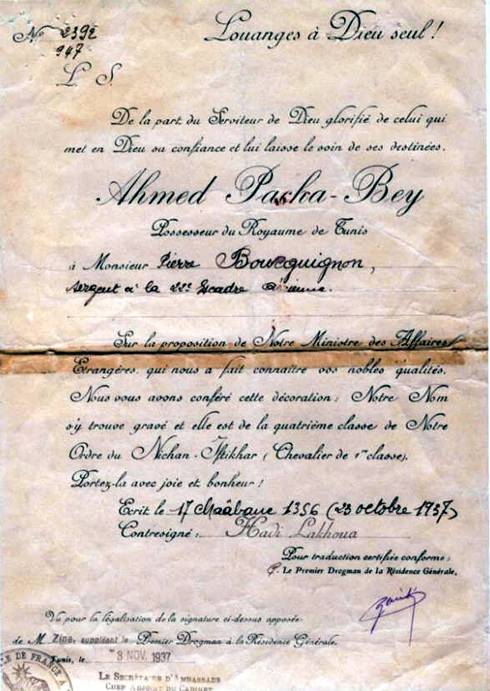 No 2392
947
L. S.
Louanges à Dieu seul!
De la part du Serviteur de Dieu glorifié de celui qui
met en Dieu sa confiance et lui laisse le soin de ses destinées.
Ahmed Pacha-Bey
Possesseur du Royaume de Tunis
à Monsieur Pierre Bourguignon,
Sergent à la 22e Escadre Aérienne.
Sur la proposition de Notre Ministre des Affaires
Etrangères, qui nous a fait connaître vos nobles qualités,
Nous vous avons conféré cette décoration; Notre Nom
s'y trouve gravé et elle est de la quatrième classe de Notre
Ordre du Nichan-Iftikhar (Chevalier de 1re classe).
Portez-la avec joie et bonheur!
Ecrit le 17 Chaâbane 1356 (23 octobre 1937)
Contresigné: Hadi Lakhoua
Pour traduction certifiée conforme:
Le Premier Drogman de la Résidence Générale,
Vu pour la légalisation de la signature ci-dessus apposée
de M. Zine, suppléant le Premier Drogman à la Résidence Générale.
Tunis, le 3 NOV. 1937
LE SECRÉTAIRE D'AMBASSADE
CHEF ADJOINT DU CABINET
DE FRANCE A